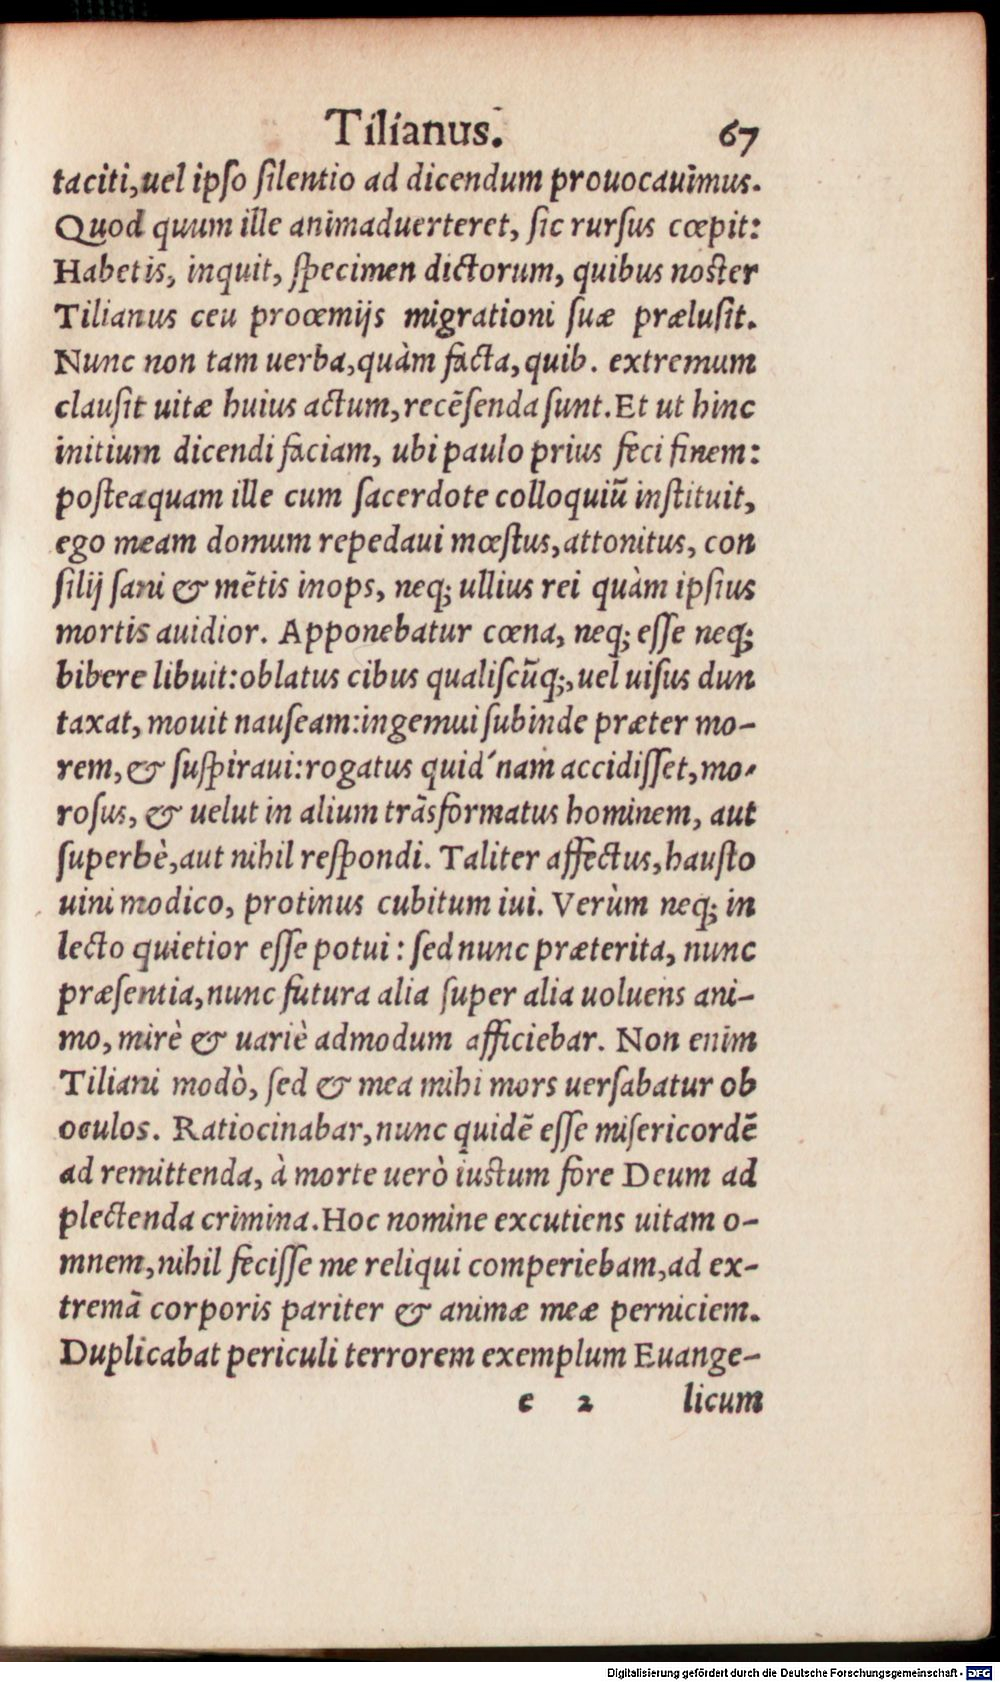 Tilianus. 67
taciti, uel ipso silentio ad dicendum prouocauimus.
Quod quum ille animaduerteret, sic rursus cœpit:
Habetis, inquit, specimen dictorum, quibus noster
Tilianus ceu proœmijs migrationi suæ prælusit.
Nunc non tam uerba, quàm facta, quib. extremum
clausit uitæ huius actum, recēsenda sunt. Et ut hinc
initium dicendi faciam, ubi paulo prius feci finem:
posteaquam ille cum sacerdote colloquiū instituit,
ego meam domum repedaui mœstus, attonitus, con
silij sani & mētis inops, neq; ullius rei quàm ipsius
mortis auidior. Apponebatur cœna, neq; esse neq;
bibere libuit: oblatus cibus qualiscūq;, uel uisus dun
taxat, mouit nauseam: ingemui subinde præter mo-
rem, & suspiraui: rogatus quid´nam accidisset, mo-
rosus, & uelut in alium trāsformatus hominem, aut
superbè, aut nihil respondi. Taliter affectus, hausto
uini modico, protinus cubitum iui. Verùm neq; in
lecto quietior esse potui: sed nunc præterita, nunc
præsentia, nunc futura alia super alia uoluens ani-
mo, mirè & uariè admodum afficiebar. Non enim
Tiliani modò, sed & mea mihi mors uersabatur ob
oculos. Ratiocinabar, nunc quidē esse misericordē
ad remittenda, à morte uerò iustum fore Deum ad
plectenda crimina. Hoc nomine excutiens uitam o-
mnem, nihil fecisse me reliqui comperiebam, ad ex-
tremā corporis pariter & animæ meæ perniciem.
Duplicabat periculi terrorem exemplum Euange-
e 2 licum
Digitalisierung gefördert durch die Deutsche Forschungsgemeinschaft - DFG